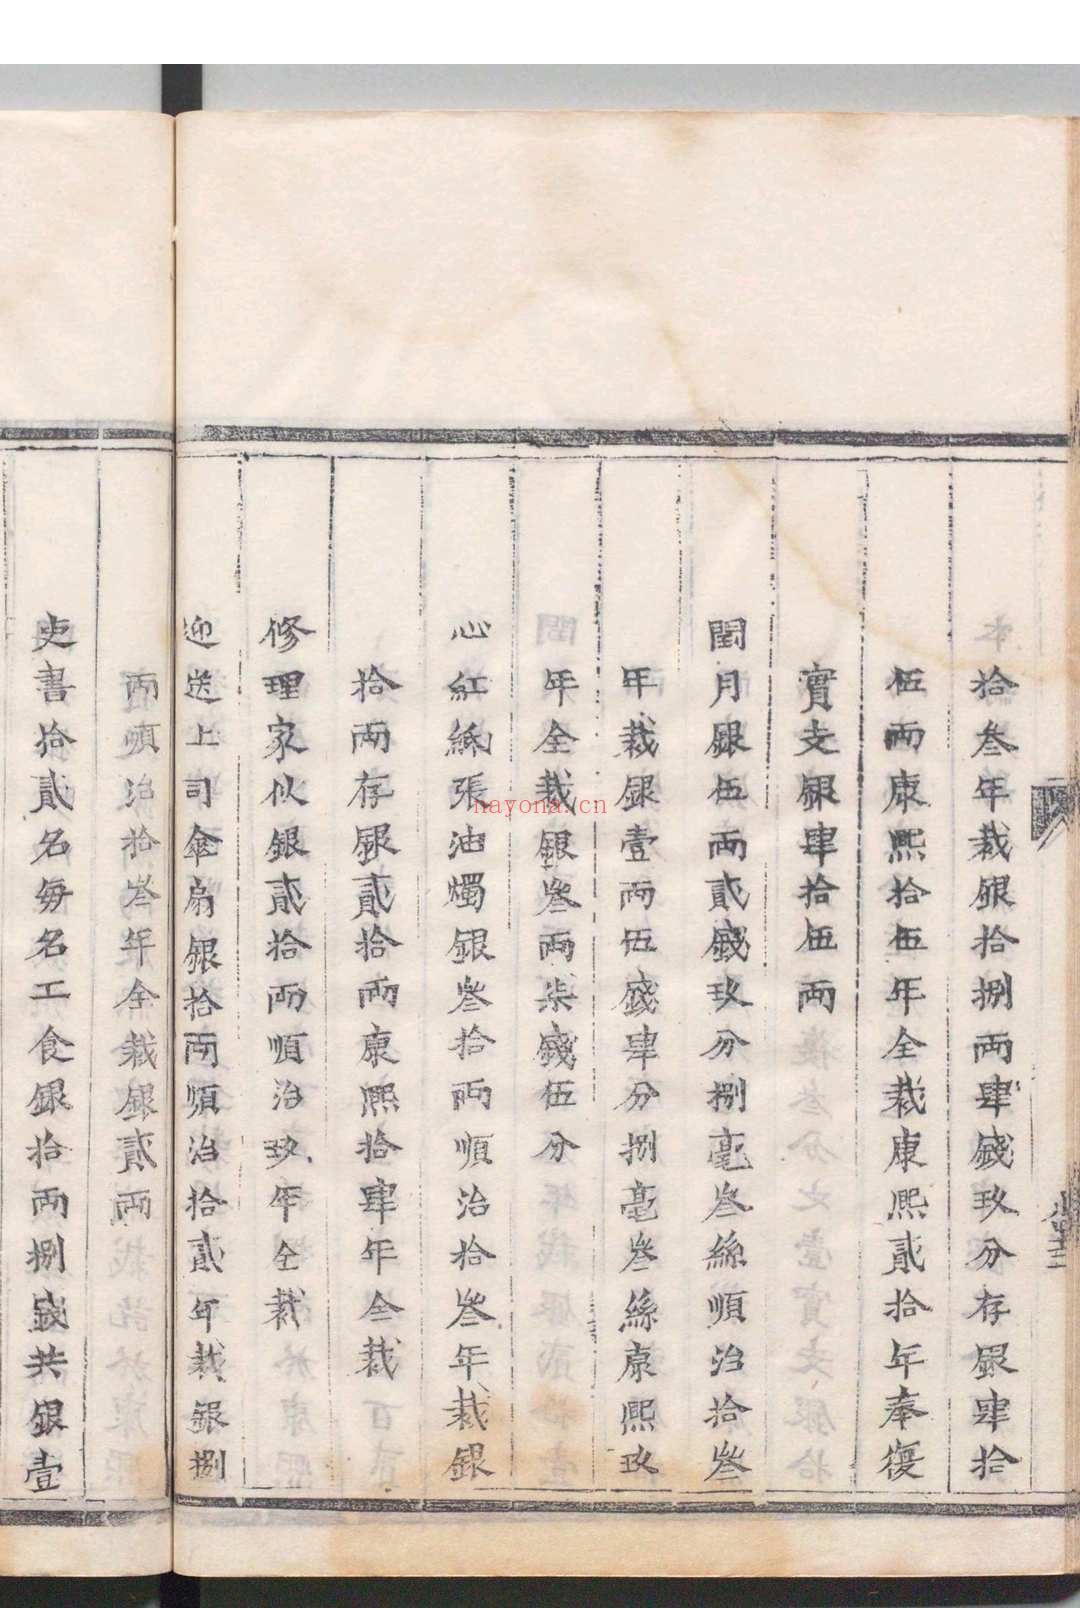 拾叁年裁銀拾捌兩肆錢玖分存銀肆拾
伍兩康熙拾伍年全裁康熙貳拾年奉復
實支銀肆拾伍兩
閏月銀伍兩貳錢玖分捌毫叁絲順治拾叁
年裁銀壹兩伍錢肆分捌毫叁絲康熙玖
年全裁銀叁兩柒錢伍分
心紅紙張油燭銀叁拾兩順治拾叁年裁銀
拾兩存銀貳拾兩康熙拾肆年全裁
修理家伙銀貳拾兩順治玖年全裁
迎送上司傘扇銀拾兩順治拾貳年裁銀捌
兩順治拾叁年全裁銀貳兩
吏書拾貳名每名工食銀拾兩捌錢共銀壹
nayona.cn